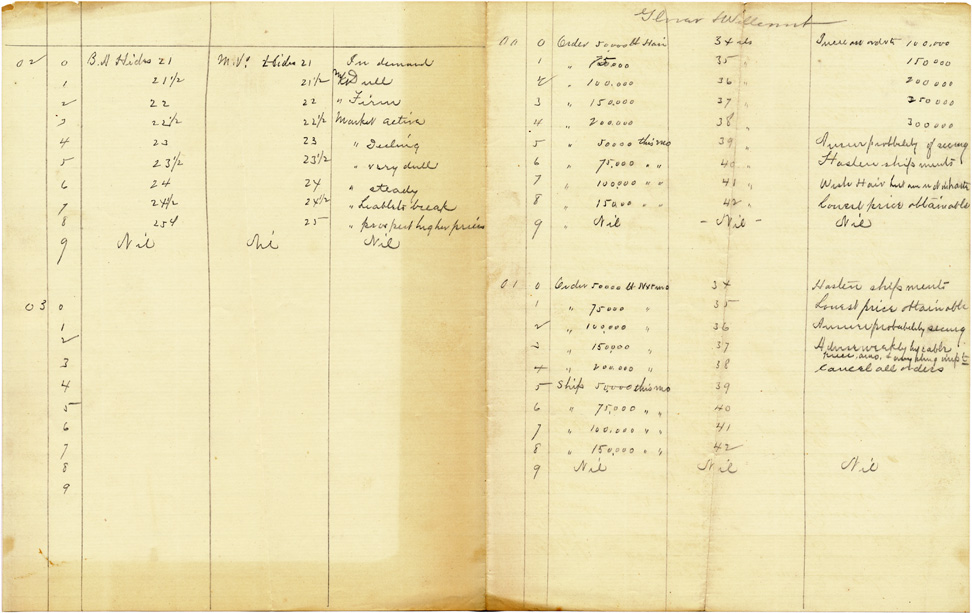 02 0 B.A Hides 21 M.V. Hides 21 In demand
1 21 1/2 21 1/2 Mkt Dull
2 22 22 " Firm
3 22 1/2 22 1/2 Market active
4 23 23 "
5 23 1/2 23 1/2 " very dull
6 24 24 " steady
7 24 1/2 24 1/2 " Liable to break
8 25 25 " prospect higher prices
9 Nil Nil Nil
03 0
1
2
3
4
5
6
7
8
9
00 0 Order 50,000 lb Hair 34 Increase order to 100,000
1 " 75,000 35 " 150000
2 " 100,000 36 " 200000
3 " 150,000 37 " 250000
4 " 200,000 38 " 300000
5 " 50000 this mo 39 " Answer probability of securing
6 " 75,000 " " 40 " Hasten shipments
7 " 100,000 " " 41 " Wish Hair but are not
8 " 150,00 " " 42 " Lowest price obtainable
9 " Nil - Nil - Nil
01 0 Order 50000 lb 34 Hasten shipments
1 " 75000 " 35 Lowest price obtainable
2 " 100,000 " 36 Answer probability securing
3 " 150,000 " 37 Advise weekly by cable
price,
4 " 200,000 " 38 Cancel all orders
5 Ship 50,000 this mo 39
6 " 75,000 " " 40
7 " 100,000 " " 41
8 " 150,000 " " 42
9 Nil Nil Nil